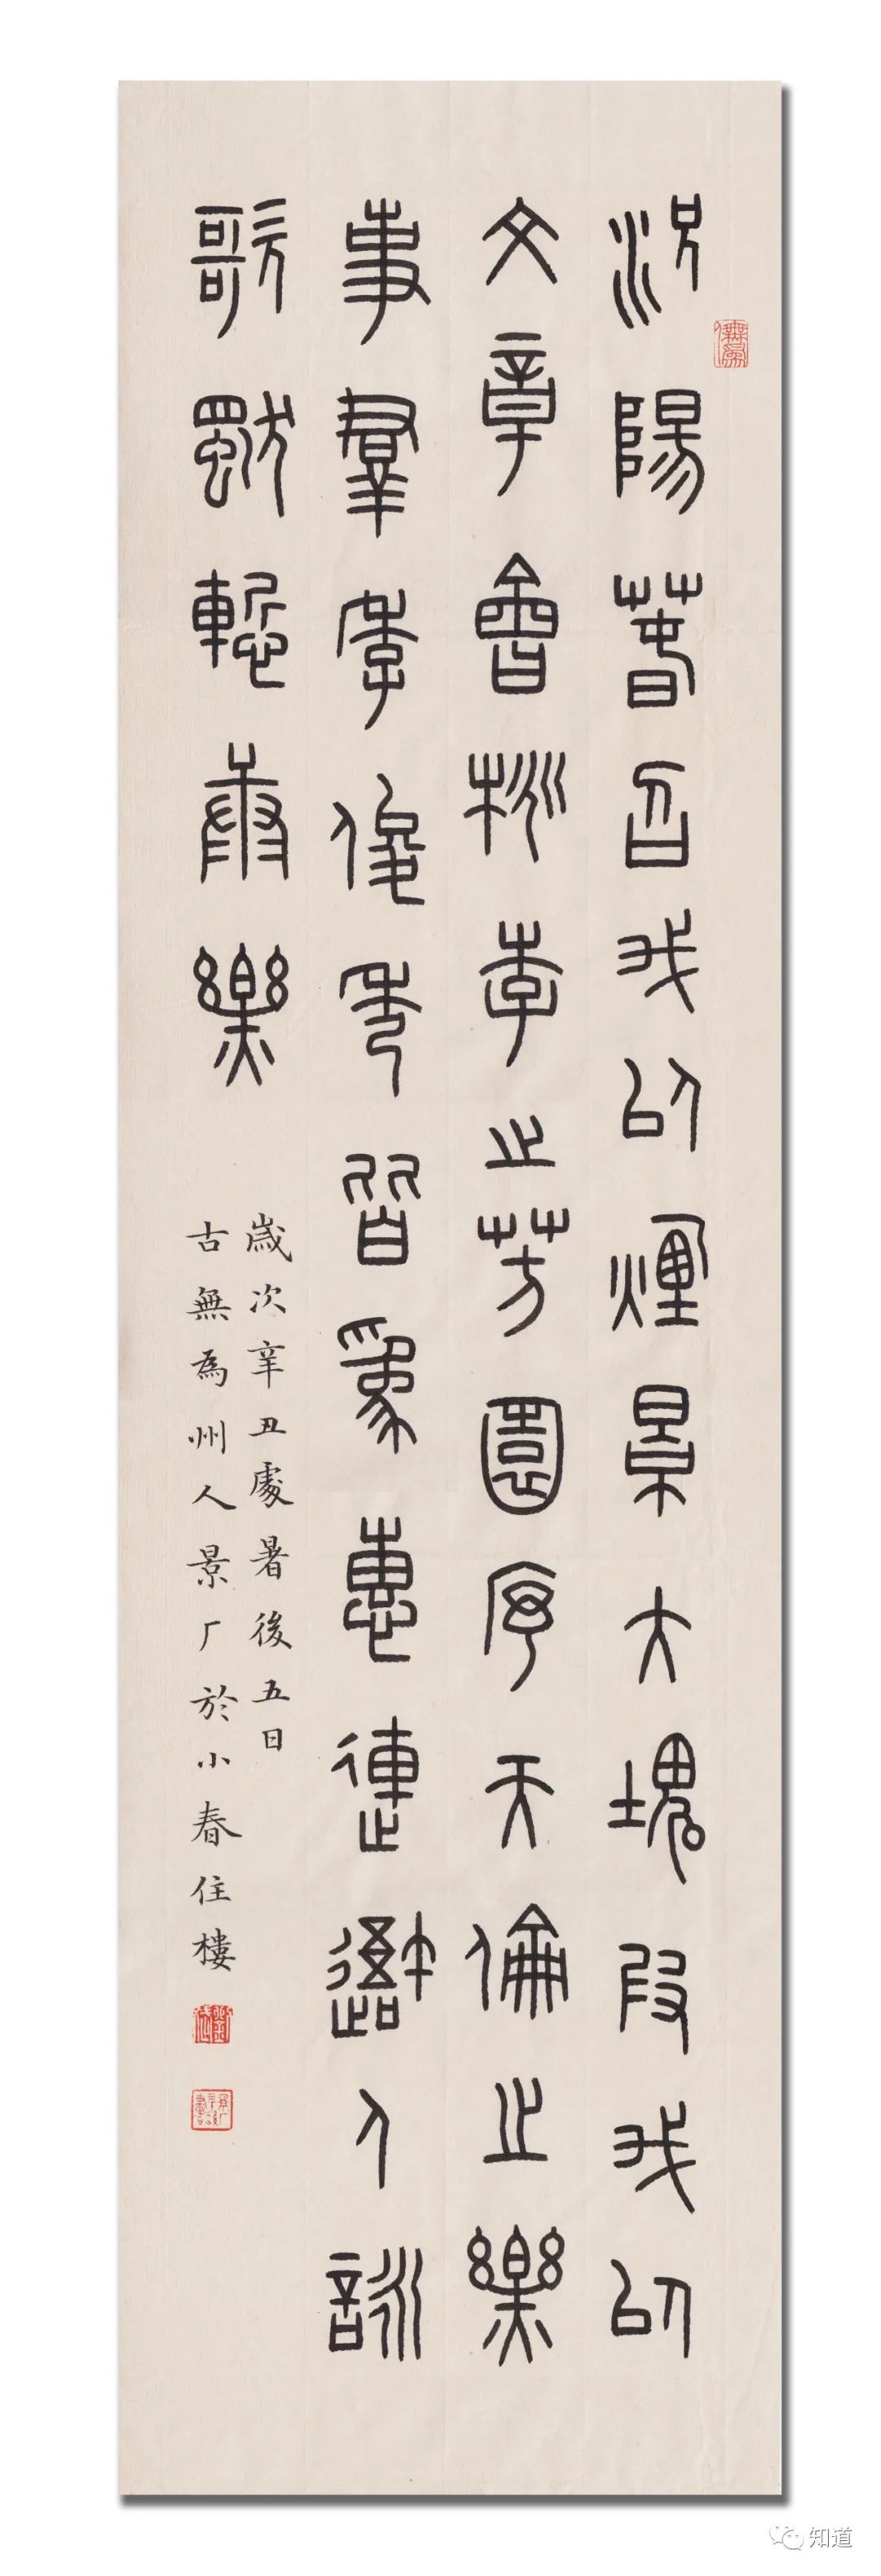 況陽春召我以煙景大塊叚我以
文章會桃李之芳園序天倫之樂
事羣季俊秀皆為惠連吾人詠
歌獨慙康樂
歲次辛丑處暑後五日
古無為州人景厂於小春住樓
知道